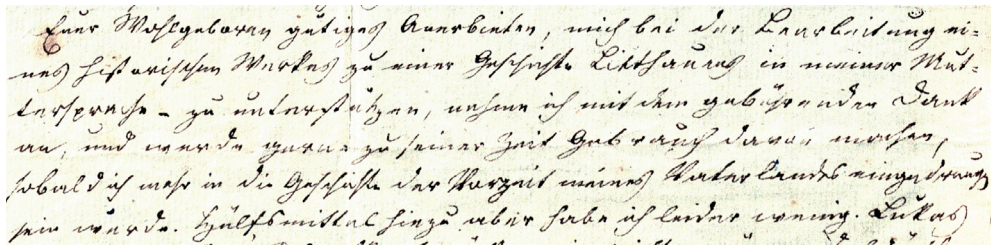 Euer Wohlgeboren gütiges Anerbieten, mich bei der Bearbeitung ei-
nes historischen Werkes zu einer Geschichte Litthauens in meiner Mut-
tersprache - zu unterstützen, nehme ich mit dem gebührenden Dank
an, und werde gerne zu seiner Zeit Gebrauch davon machen,
sobald ich mehr in die Geschichte der Vorzeit meines Vaterlandes eingedrungen
sein werde. Hülfsmittel hiezu aber habe ich leider wenig. Lukas